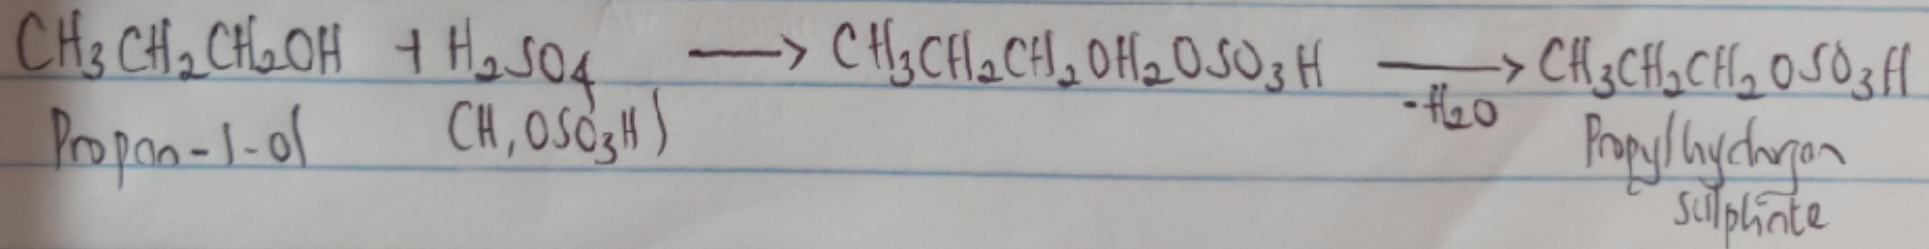 CH₃CH₂CH₂OH + H₂SO₄ ⟶ CH₃CH₂CH₂OH₂OSO₃H ⟶ CH₃CH₂CH₂OSO₃H
-H₂O
Propan-1-ol (H, OSO₃H) Propylhydrogen
sulphate